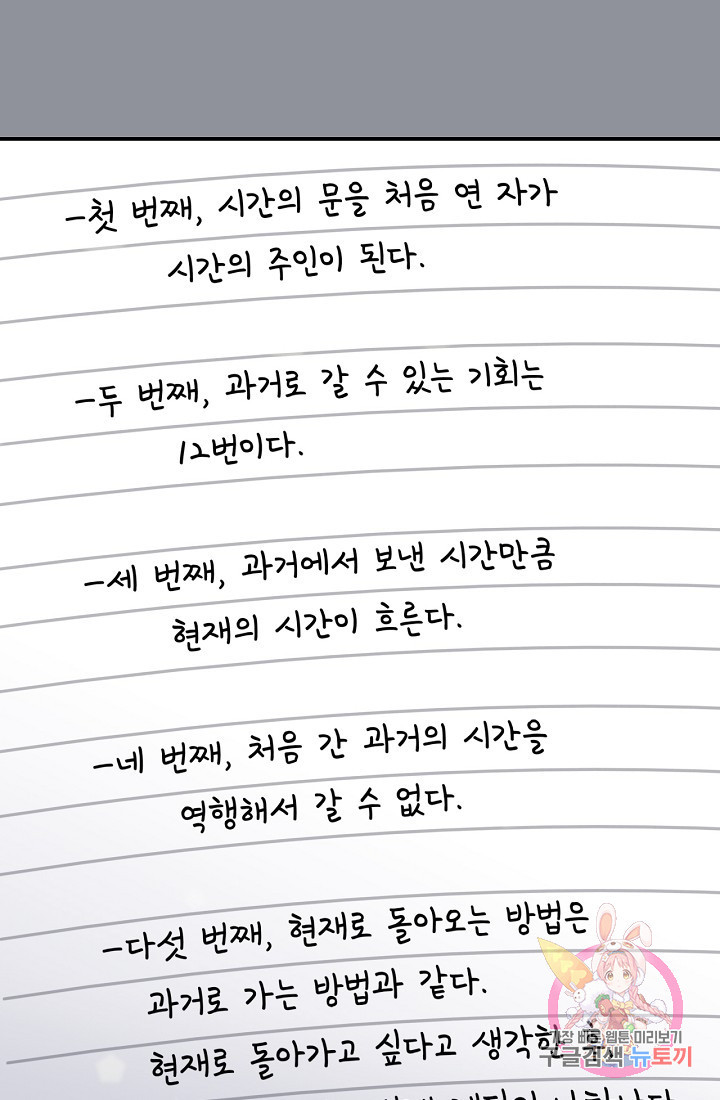 -첫 번째, 시간의 문을 처음 연 자가
시간의 주인이 된다.
-두 번째, 과거로 갈 수 있는 기회는
12번이다.
-세 번째, 과거에서 보낸 시간만큼
현재의 시간이 흐른다.
-네 번째, 처음 간 과거의 시간을
역행해서 갈 수 없다.
-다섯 번째, 현재로 돌아오는 방법은
과거로 가는 방법과 같다.
현재로 돌아가고 싶다고 생각한 후
가장 빠른 웹툰 미리보기
구글검색 뉴토끼